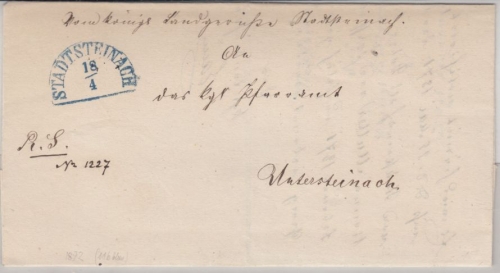 Vom königl Landgerichte Stadtsteinach.
An
STADTSTEINACH
18
4
das kgl Pfarramt
R. S.
No 1227
Untersteinach